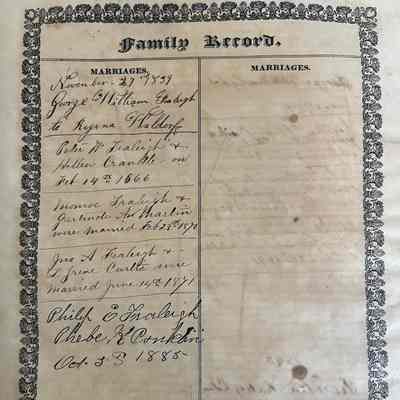 Family Record.
MARRIAGES.
November 27 1839
George William Fraleigh
to Regena Waldorf
Peter W Fraleigh &
Hellen Crankle on
Feb 14th 1866
Monroe Fraleigh &
Gertrude An Martin
were married Feb 23d 1870
Jno A Fraleigh &
Irene Curtis were
married June 14th 1871
Philip E Fraleigh
Phebe K Conklin
Oct 3d 1885
MARRIAGES.